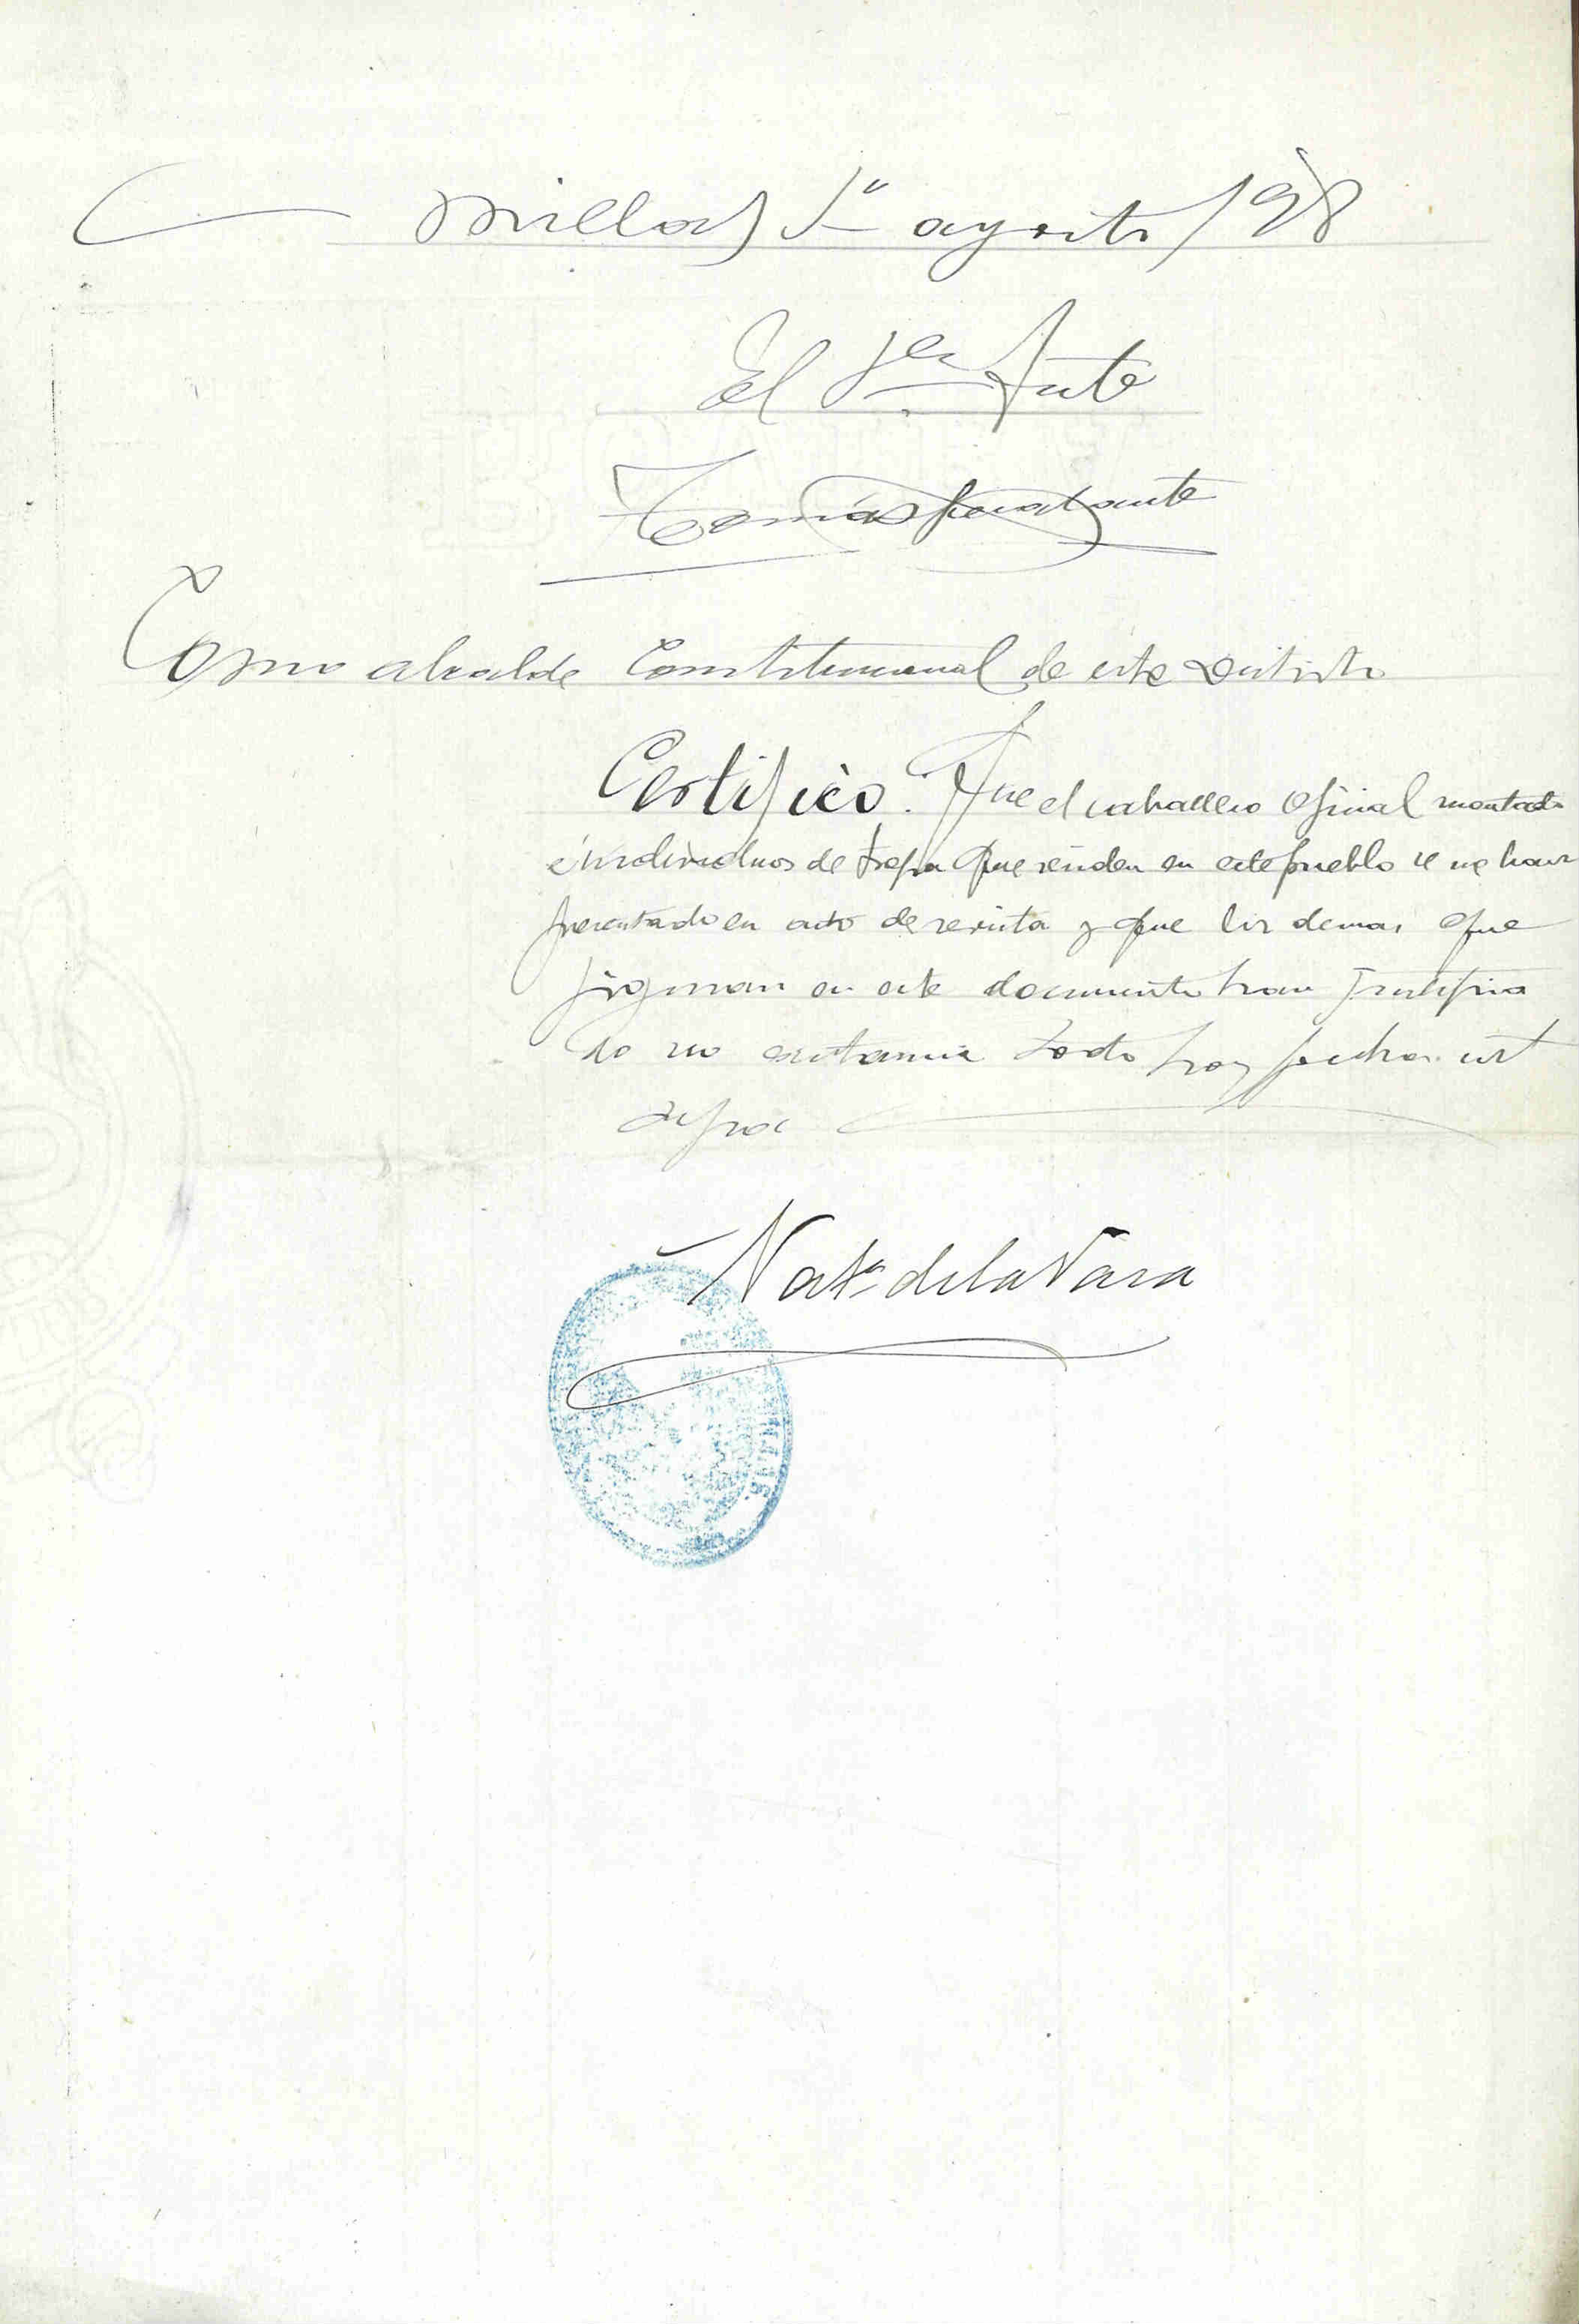 Orillas 1º agosto /98
El 1er Tnte
Tomás
Como alcalde Constitucional de este distrito
Certifico. Que el caballero Oficial montado
é individuos de tropa que residen en este pueblo se me han
presentado en acto de revista y que los demas que
figuran en este documento han justifica
do su existencia todo hoy fecha ut
supra
Nat.º de la Vara